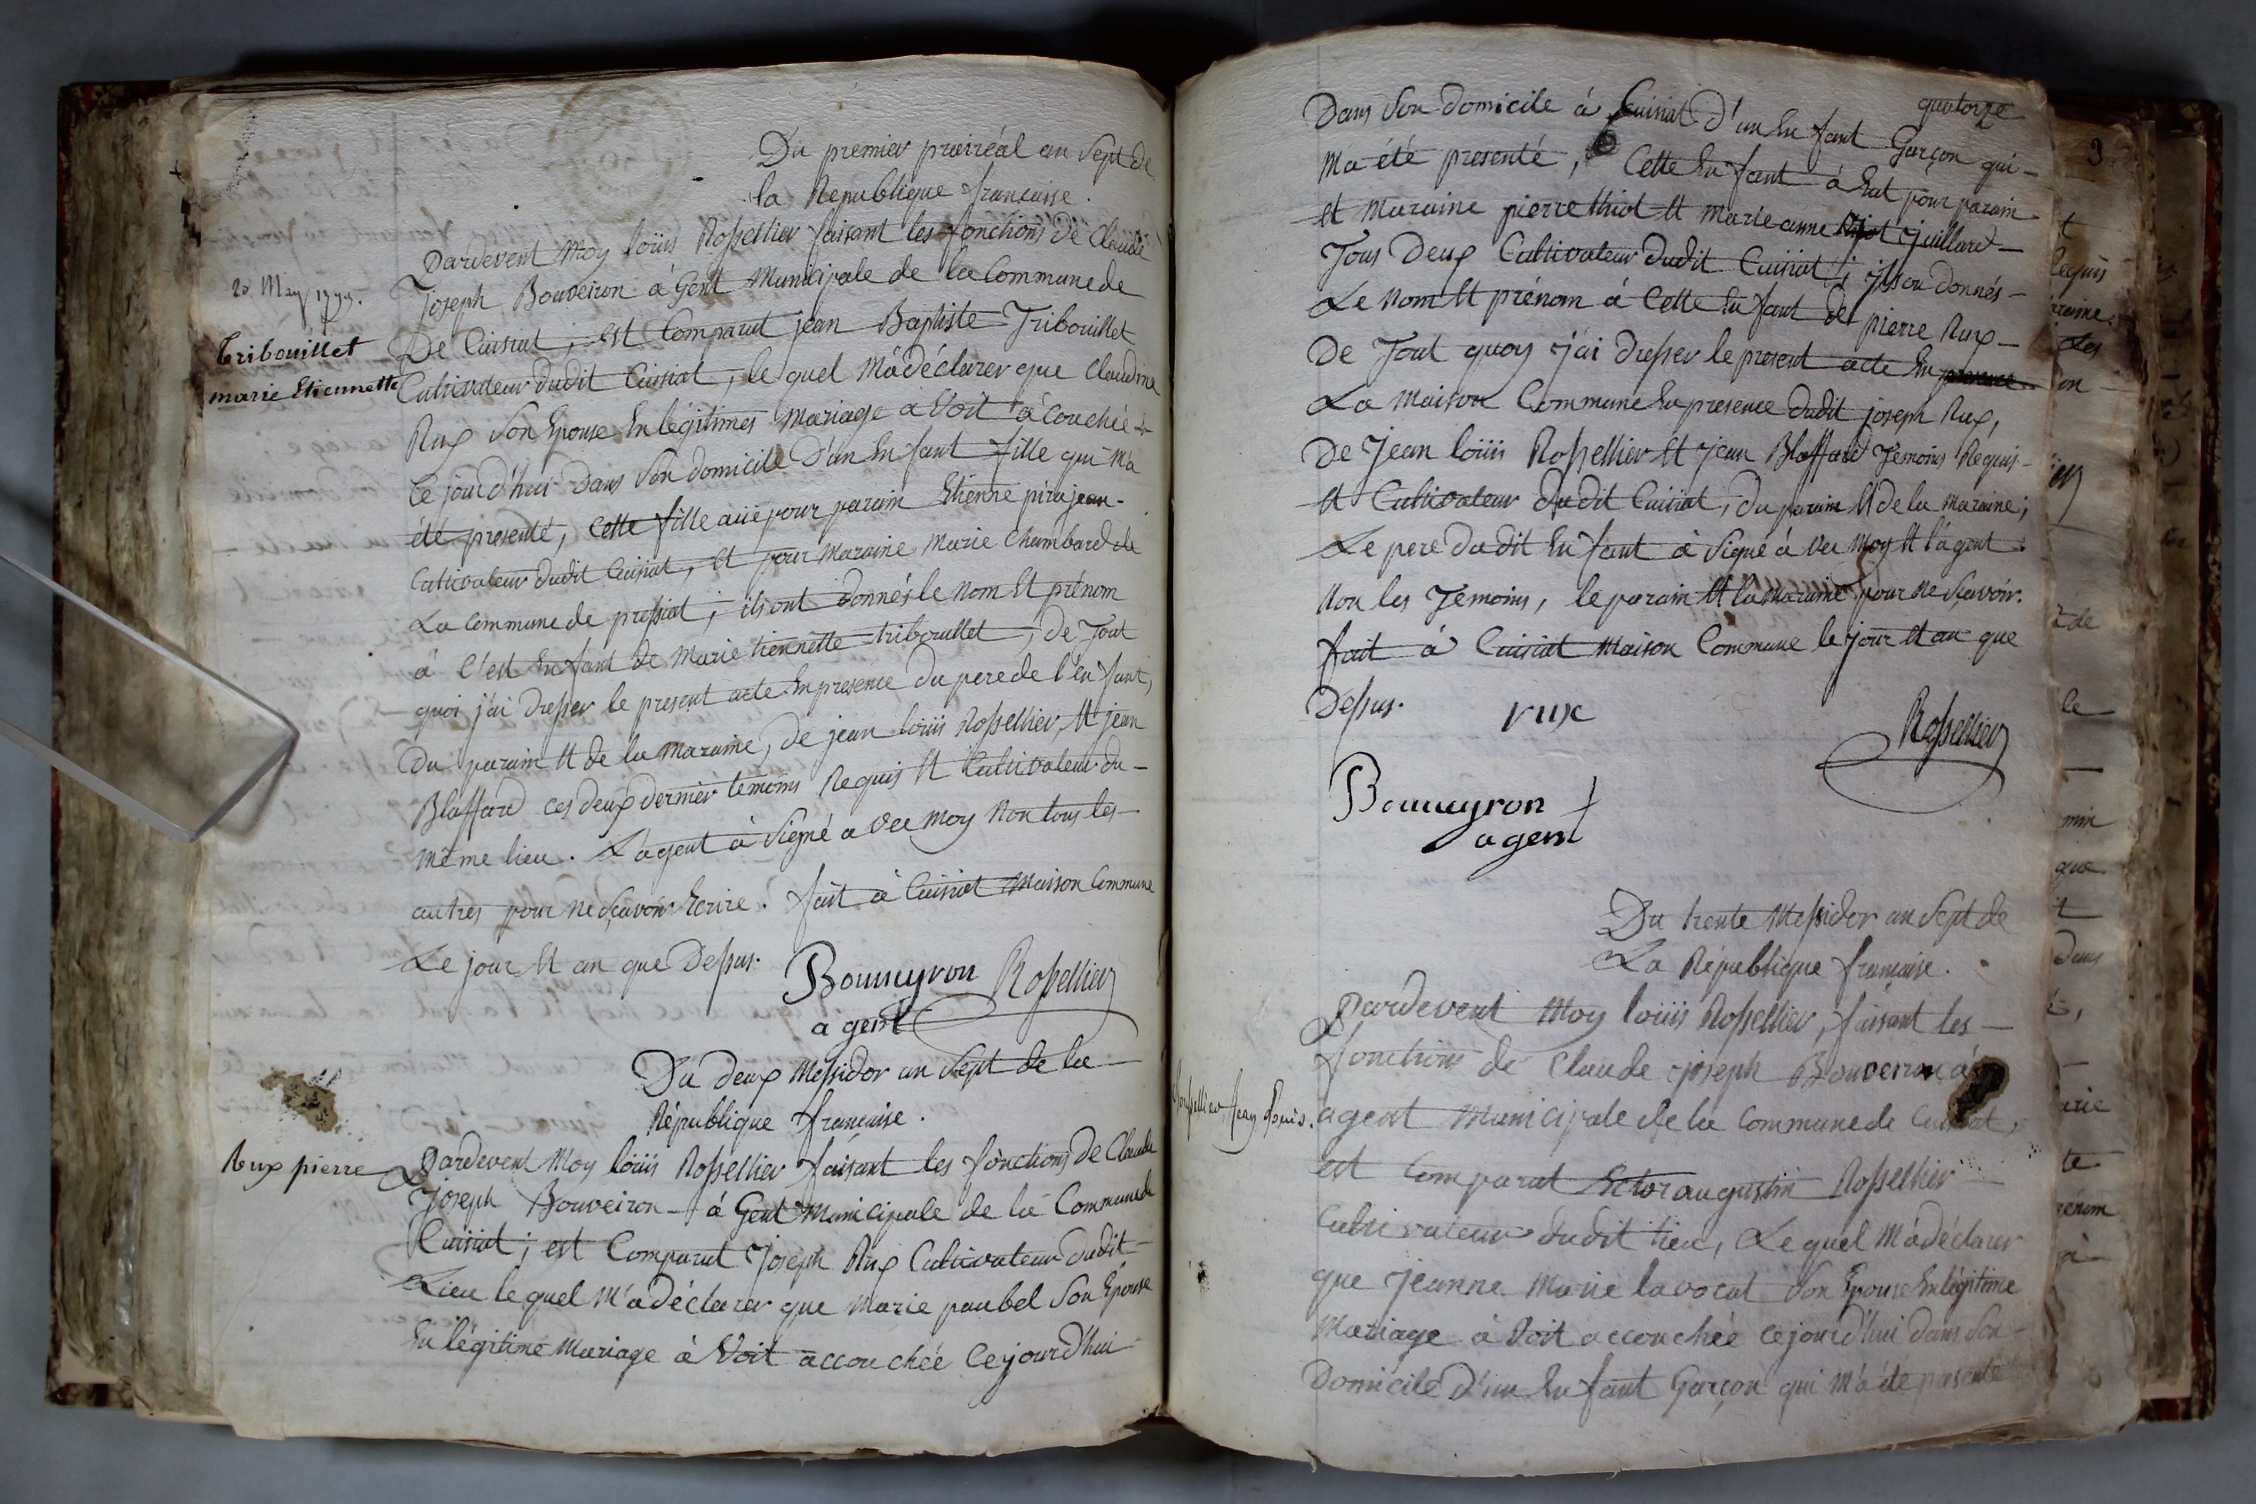 Du premier prairéal an Sept de
la Republique francaise.
20 May 1799.
tribouillet
marie Etiennette
Pardevent Moy loüis Rossellier faisant les fonctions de Claude
Joseph Bouveiron à Gent Municipale de la Commune de
De Cuisiat ; est Comparut jean Baptiste Tribouillet
Cultivateur dudit Cuisiat, le quel Mà déclarer que Claudine
Rux Son Epouse En légitimes Mariage a Voit à Couchée
Ce jourd'hui Dans Son domicile D'un Enfant fille qui Ma
été presenté, Cette fille aüe pour parain Etienne pirajean-
Cultivateur dudit Cuisiat, Et pour Maraine Marie Chambard de
La Commune de pressiat ; ils ont donnés le Nom Et prénom
à C'est Enfant de Marie tiennette tribouillet, De Tout
quoi j'ai Dresser le present acte En presence du pere de l'Enfant,
Du parain Et de la Maraine, de jean loüis Rossellier, Et jean
Blaffard ces deux dernier temoins Requis Et Cultivateur du-
Même lieu. L'agent à Signé a vec Moy Non tous les-
autres pour ne Sçavoir Ecrire. fait à Cuisiat Maison Commune
Le jour Et an que Dessus.
Bouveyron Rossellier
agent
Du deux Messidor an Sept de la
République francaise.
Rux pierre
Pardevent Moy loüis Rossellier faisant les fonctions de Claude
Joseph Bouveiron à Gent Municipale de la Commune de
Cuisiat ; est Comparut Joseph Rux Cultivateur dudit-
Lieu le quel M'a déclarer que Marie paubel Son Epouse
En légitime Mariage à Voit accouchée Ce jourd'hui
quatorze
Dans Son domicile à Cuisiat D'un Enfant Garçon qui-
Ma été presenté, Cette Enfant à Eut pour parain
Et Maraine pierre Et Marie anne juillard-
Tous Deux Cultivateur dudit Cuisiat ; ils on donnés-
Le Nom Et prénom à Cette Enfant de pierre Rux-
De Tout quoy j'ai dresser le present acte En presence
La Maison Commune En presence dudit joseph Rux,
De Jean loüis Rossellier Et Jean Blaffard Temoins Requis-
Et Cultivateur dudit Cuisiat, du parain Et de la Maraine ;
Le pere dudit Enfant à Signé à vec Moy Et l'agent
Non les Temoins, le parain Et la Maraine pour ne Sçavoir.
fait à Cuisiat Maison Commune le jour Et an que
Dessus.
rux
Rossellier
Bouveyron
agent
Du trente Messidor an Sept de
La République francaise.
Rossellier Jean Louis.
Pardevent Moy loüis Rossellier, faisant les-
fonctions de Claude joseph Bouveiron à
agent Municipale de la Commune de Cuisiat,
est Comparut augustin Rossellier
Cultivateur dudit lieu, Le quel Mà déclarer
que Jeanne Marie lavocat Son Epouse En légitime
Mariage à Voit accouchée Ce jourd'hui dans Son-
Domicile D'un Enfant Garçon qui M'à été presenté